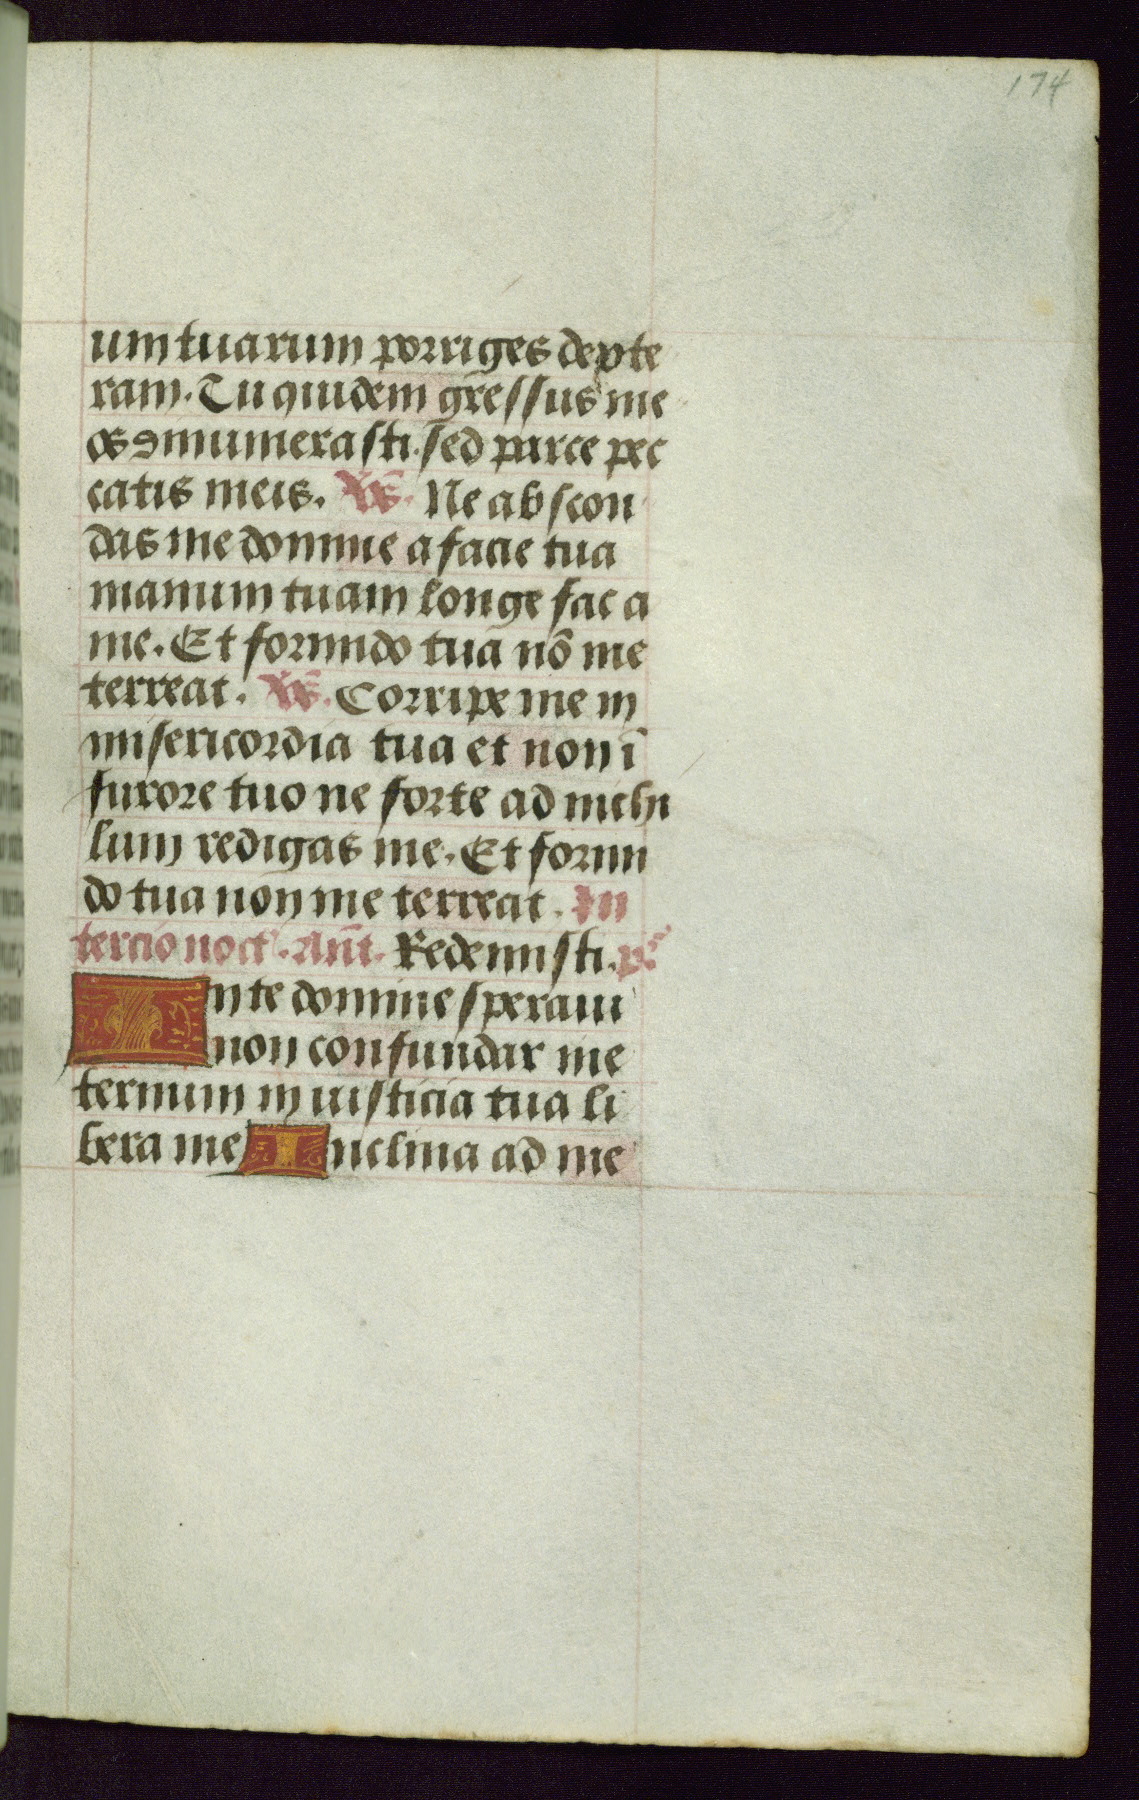 174
um tuarum porriges dexte
ram. Tu quidem gressus me
os ꝯnumerasti. sed parce pec
catis meis. ℟. Ne abscon
das me domine a facie tua
manum tuam longe fac a
me. Et formido tua nō me
terreat. ℣. Corripe me in
misericordia tua et non ī
furore tuo ne forte ad nichi
lum redigas me. Et formi
do tua non me terreat. In
tercio noct. Añt. Redemisti. ps
In te domine speraui
non confundar in e
ternum in iusticia tua li
bera me Inclina ad me